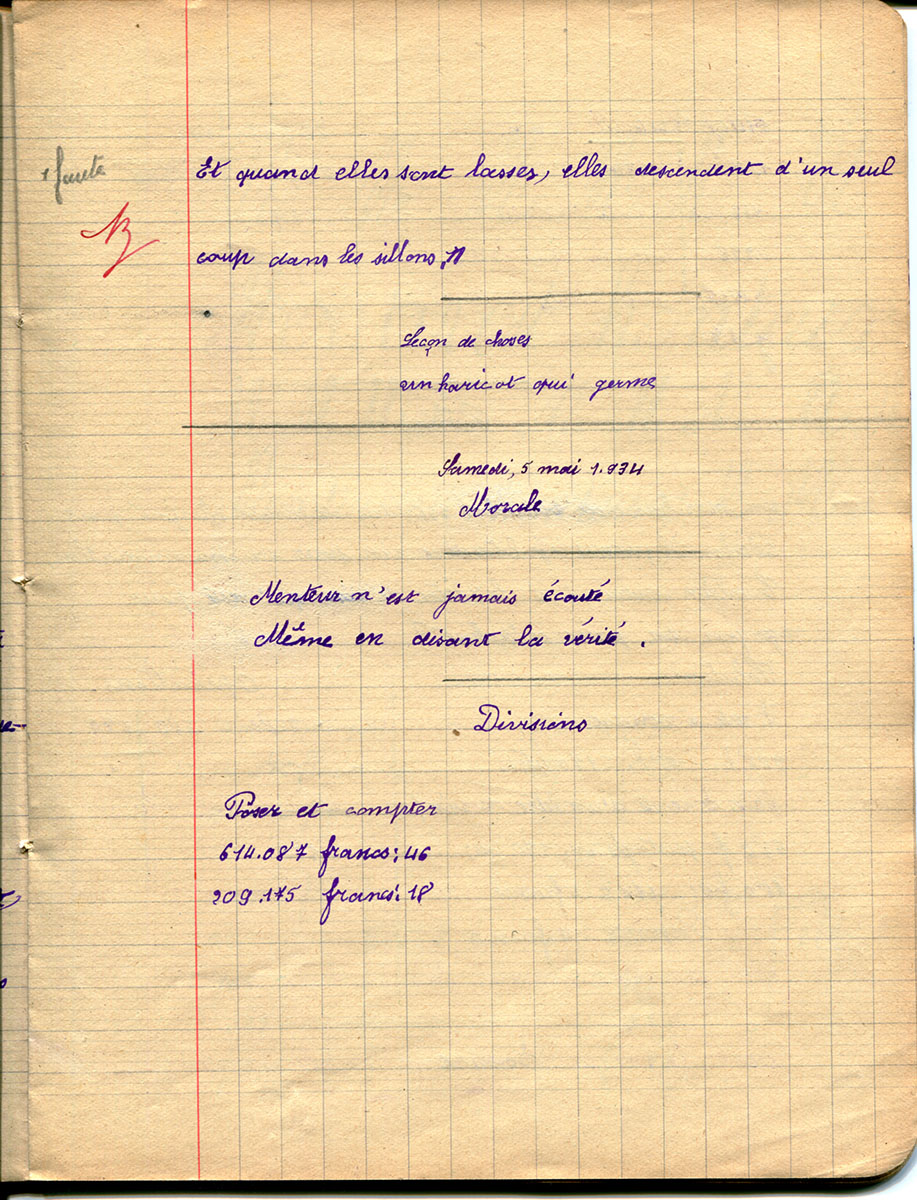 1 faute
Et quand elles sont lasses, elles descendent d'un seul
B
coup dans les sillons."
Leçon de choses
un haricot qui germe
Samedi, 5 mai 1.934
Morale
Menteur n'est jamais écouté
Même en disant la vérité.
Divisions
Poser et compter
614.087 francs : 46
209.175 francs : 18